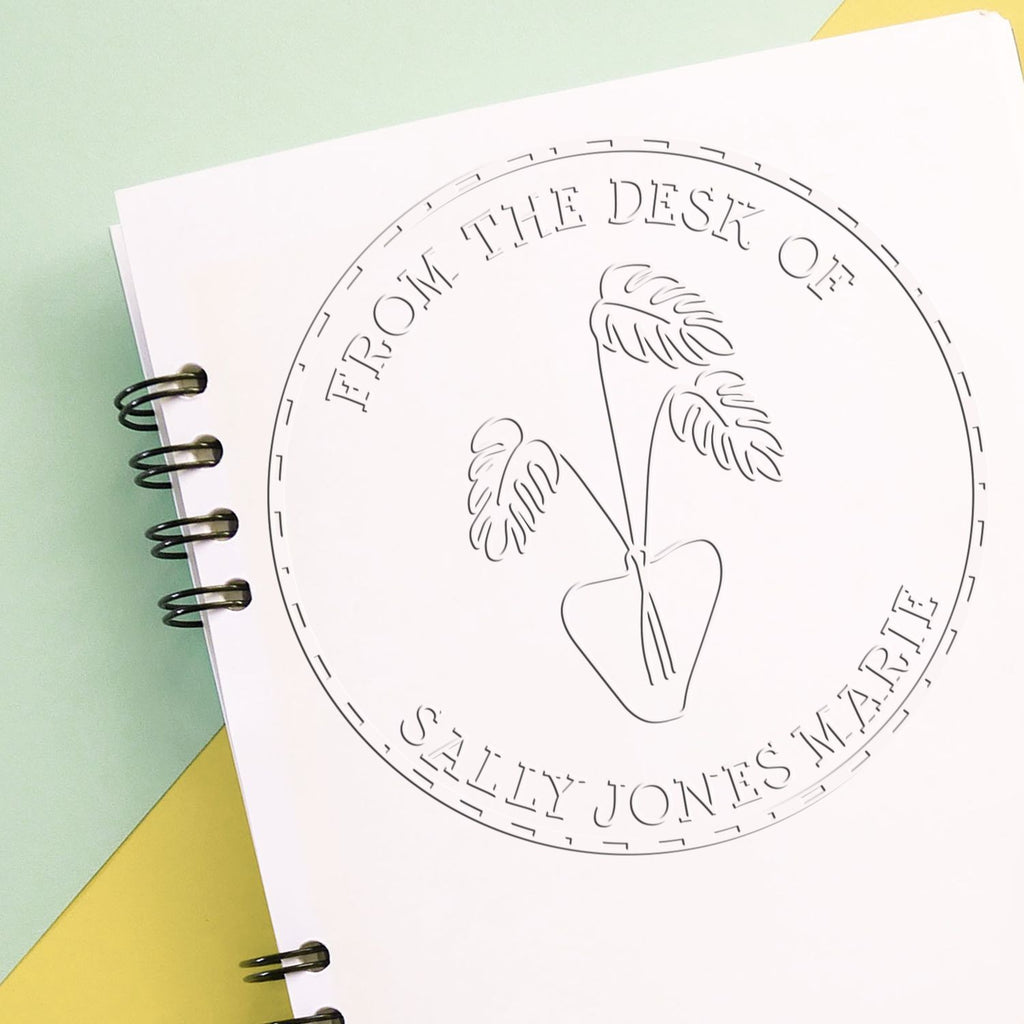 FROM THE DESK OF
SALLY JONES MARIE